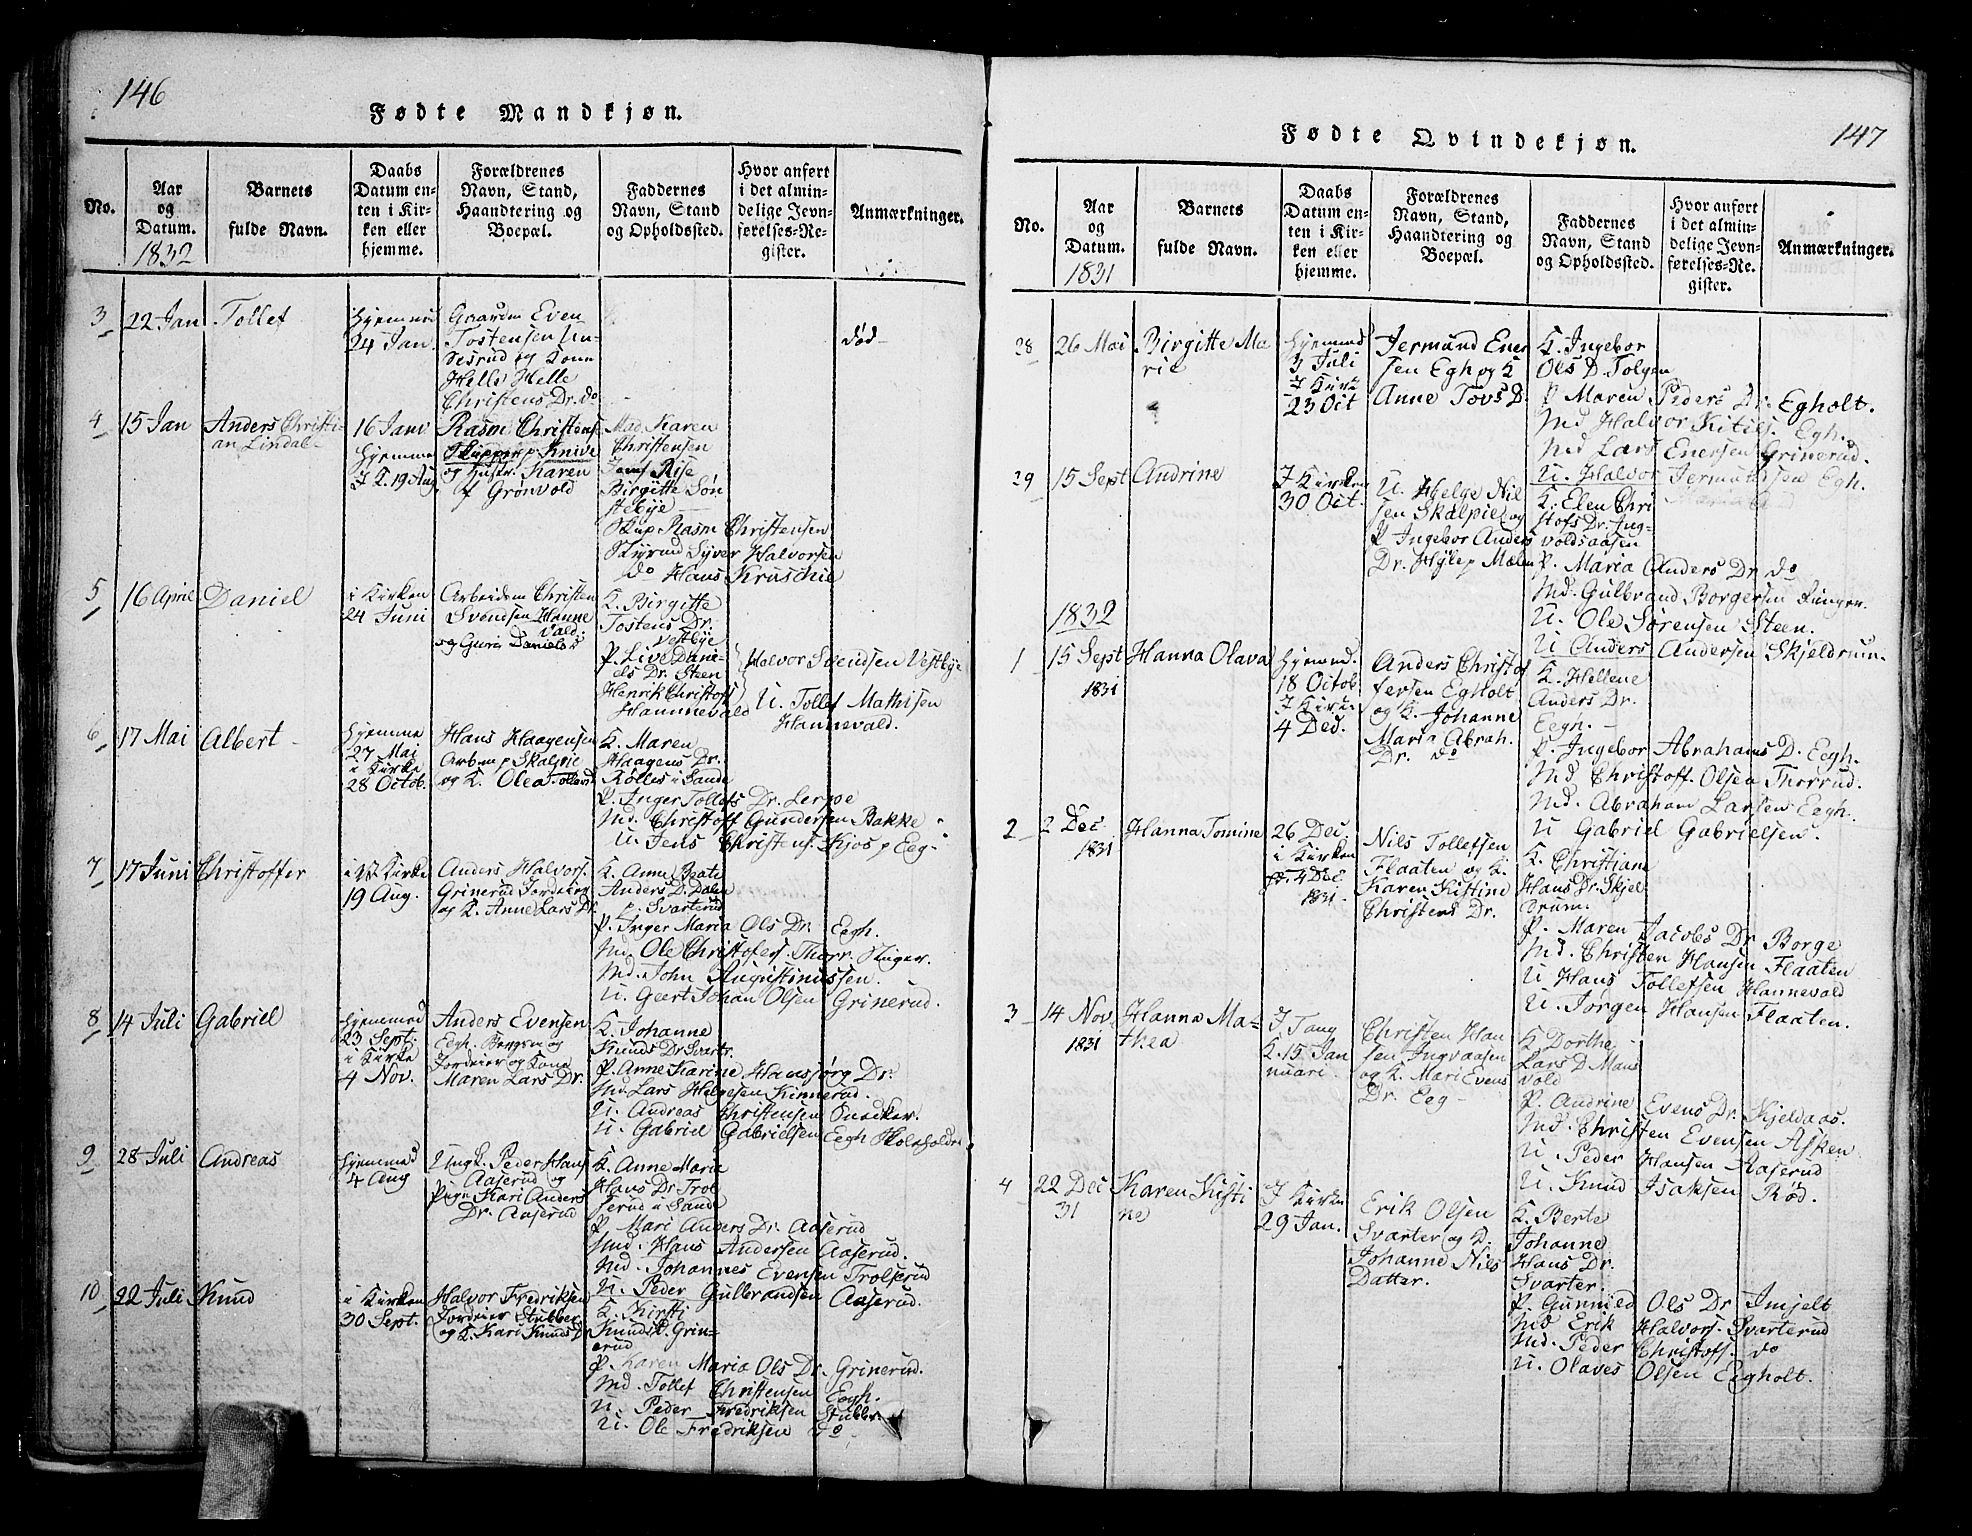 146
Fødte Mandkjøn.
No.
Aar
og
Datum.
1832
Barnets
fulde Navn.
Daabs
Datum en-
ten i Kir-
ken eller
hjemme.
Forældrenes
Navn, Stand,
Haandtering og
Boepæl.
Faddernes
Navn, Stand
og Opholdssted.
Hvor anført
i det almin-
delige Jevn-
førelses-Re-
gister.
Anmærkninger.
3
22 Jan
Tollef
hjemmed
24 Jan
Gaardm Even
Tostensen Un-
nesrud og Kone
Helle
Christens Dr. do
død
4
15 Jan
Anders Christi-
an Lindal
16 Janv
hjemme
I K. 19 Aug
Rasm Christens.
Skipper p Knive
og Hustr. Karen
f Grönvold
Mad. Karen
Christensen
Jomf Riise
Birgitte Søn
stebye
Skip Rasm Christensen
Styrmd Syver Halvorsen
do Hans Kruschie
5
16 April
Daniel
i Kirken
24 Juni
Arbeidsm Christen
Svendsen Hanne
vald
og Guri Daniels D
K. Birgitte
Tostens Dr.
Vestbye
P. Live Danie-
els Dr. Steen
Henrik Christoffs
Hannevald
Halvor Svendsen Vestbye
U. Tollef Mathisen
Hannevald.
6
17 Mai
Albert
hjemme
27 Mai
i Kirke
28 Octob.
Hans Haagensen
Arbm p Skalpie
og K. Olea Tollevsd
K. Maren
Haagens Dr.
Rölles i Sande
P. Inger Tollefs Dr. Lerpoe
Md. Christoff Gundersen Bakke
U. Jens Christens. Kjos p Eeg
7
17 Juni
Christoffer
i V. Kirke
19 Aug.
Anders Halvors.
Grinerud Jordeier
og K. Anne Lars Dr.
K. Anne Beate
Anders D. Dalen
p. Svarterud
P. Inger Maria Ols Dr. Eegh.
Md. Ole Christofers. Thorr. Ringer.
Md. John Augustinussen.
U. Geert Johan Olsen Grinerud.
8
14 Juli
Gabriel
hjemmed
23 Sept.
i Kirke
4 Nov.
Anders Evensen
Eegh. Bergsm og
Jordeier og Kone
Maren Lars Dr.
K. Johanne
Knuds Dr Svartr.
P. Anne Karine Hansjørg Dr.
Md. Lars Helgesen Kinnerud.
U. Andreas Christensen Snedker.
U. Gabriel Gabrielsen Eegh Skoleholdr
9
28 Juli
Andreas
hjemmed
4 Aug
Ungk. Peder Hans
Aaserud og
Pige Kari Anders
Dr. Aaserud
K. Anne Marie
Hans Dr Trol
serud i Sand
P. Mari Anders Dr. Aaserud
Md. Hans Andersen Aaserud.
Md. Johannes Evensen Trolserud
U. Peder Gulbrandsen Aaserud.
10
22 Juli
Knud
i Kirken
30 Sept.
Halvor Fredriksen
Jordeier Stubber
og K. Kari Knuds D
K. Kirsti
Knuds D. Grin-
erud
P. Karen Maria Ols Dr. Grinerud.
Md. Tollef Christensen Eegh.
U. Peder Fredriksen Stubbr
U. Ole Fredriksen do
147
Fødte Qvindekjøn.
No.
Aar
og
Datum.
1831
Barnets
fulde Navn.
Daabs
Datum en-
ten i Kir-
ken eller
hjemme.
Forældrenes
Navn, Stand,
Haandtering og
Boepæl.
Faddernes
Navn, Stand
og Opholdssted.
Hvor anført
i det almin-
delige Jevn-
førelses-Re-
gister.
Anmærkninger.
28
26 Mai
Birgitte Ma
rie
hjemmed
3 Juli
I Kirk
23 Oct
Jermund Ener
sen Egh og K
Anne Tovs D.
K. Ingebor
Ols D. Tolgen
P Maren Peders Dr. Egholt.
Md Halvor Kitils. Egh.
Md Lars Enersen Grinerud.
U. Halvor Jermundsen Egh.
29
15 Sept
Andrine
I Kirken
30 Oct.
U. Helge Nil
sen Skalpie og
P Ingebor Anders
Dr. p Mælen
K. Elen Chri
stofs Dr. Ing-
voldsaasen
P. Maria Anders Dr do
Md. Gulbrand Borgersen Ringer.
U. Ole Sörensen Steen.
U Anders Andersen Skjeldrum.
1832
1
15 Sept
1831
Hanna Olava
hjemmd.
18 Octob
I Kirke
4 Ded.
Anders Christof
fersen Egholt
og K. Johanne
Maria Abrah.
Dr. do
K. Hellene
Anders Dr.
Eegh.
P. Ingebor Abrahams D. Eegh.
Md Christoff. Olsen Thorrud.
Md. Abraham Larsen Eegh.
U Gabriel Gabrielsen.
2
2 Dec
1831
Hanna Tomine
26 Dec.
i Kirken
4 Dec.
1831
Nils Tollefsen
Flaaten og K.
Karen Kistine
Christens Dr.
K. Christiane
Hans Dr. Skjel
drum.
P. Maren Jacobs Dr Borge
Md. Christen Hansen Flaaten
U Hans Tollefsen Hannevald
U. Jörgen Hansen Flaaten.
3
14 Nov.
1831
Hanna Ma-
thea
I Tang
K. 15 Jan
nuari.
Christen Han
sen Ingvaasen
og K. Mari Evens
Dr. Eeg
K Dorthe
Lars D Maus
vold
P. Andrine Evens Dr. Skjeldaas.
Md. Christen Evensen Asken
U. Peder Hansen Aaserud
U. Knud Isaksen Röd.
4
22 Dec
31
Karen Kisti
ne
I Kirke
29 Jan.
Erik Olsen
Svarter og K.
Johanne Nils
Datter.
K. Berte
Johanne
Hans Dr.
Svarter
P. Gunnild Ols Dr Imjelt
Md Erik Halvors. Svarterud
Md. Peder Christoff. do
U. Olaves Olsen Eegholt.